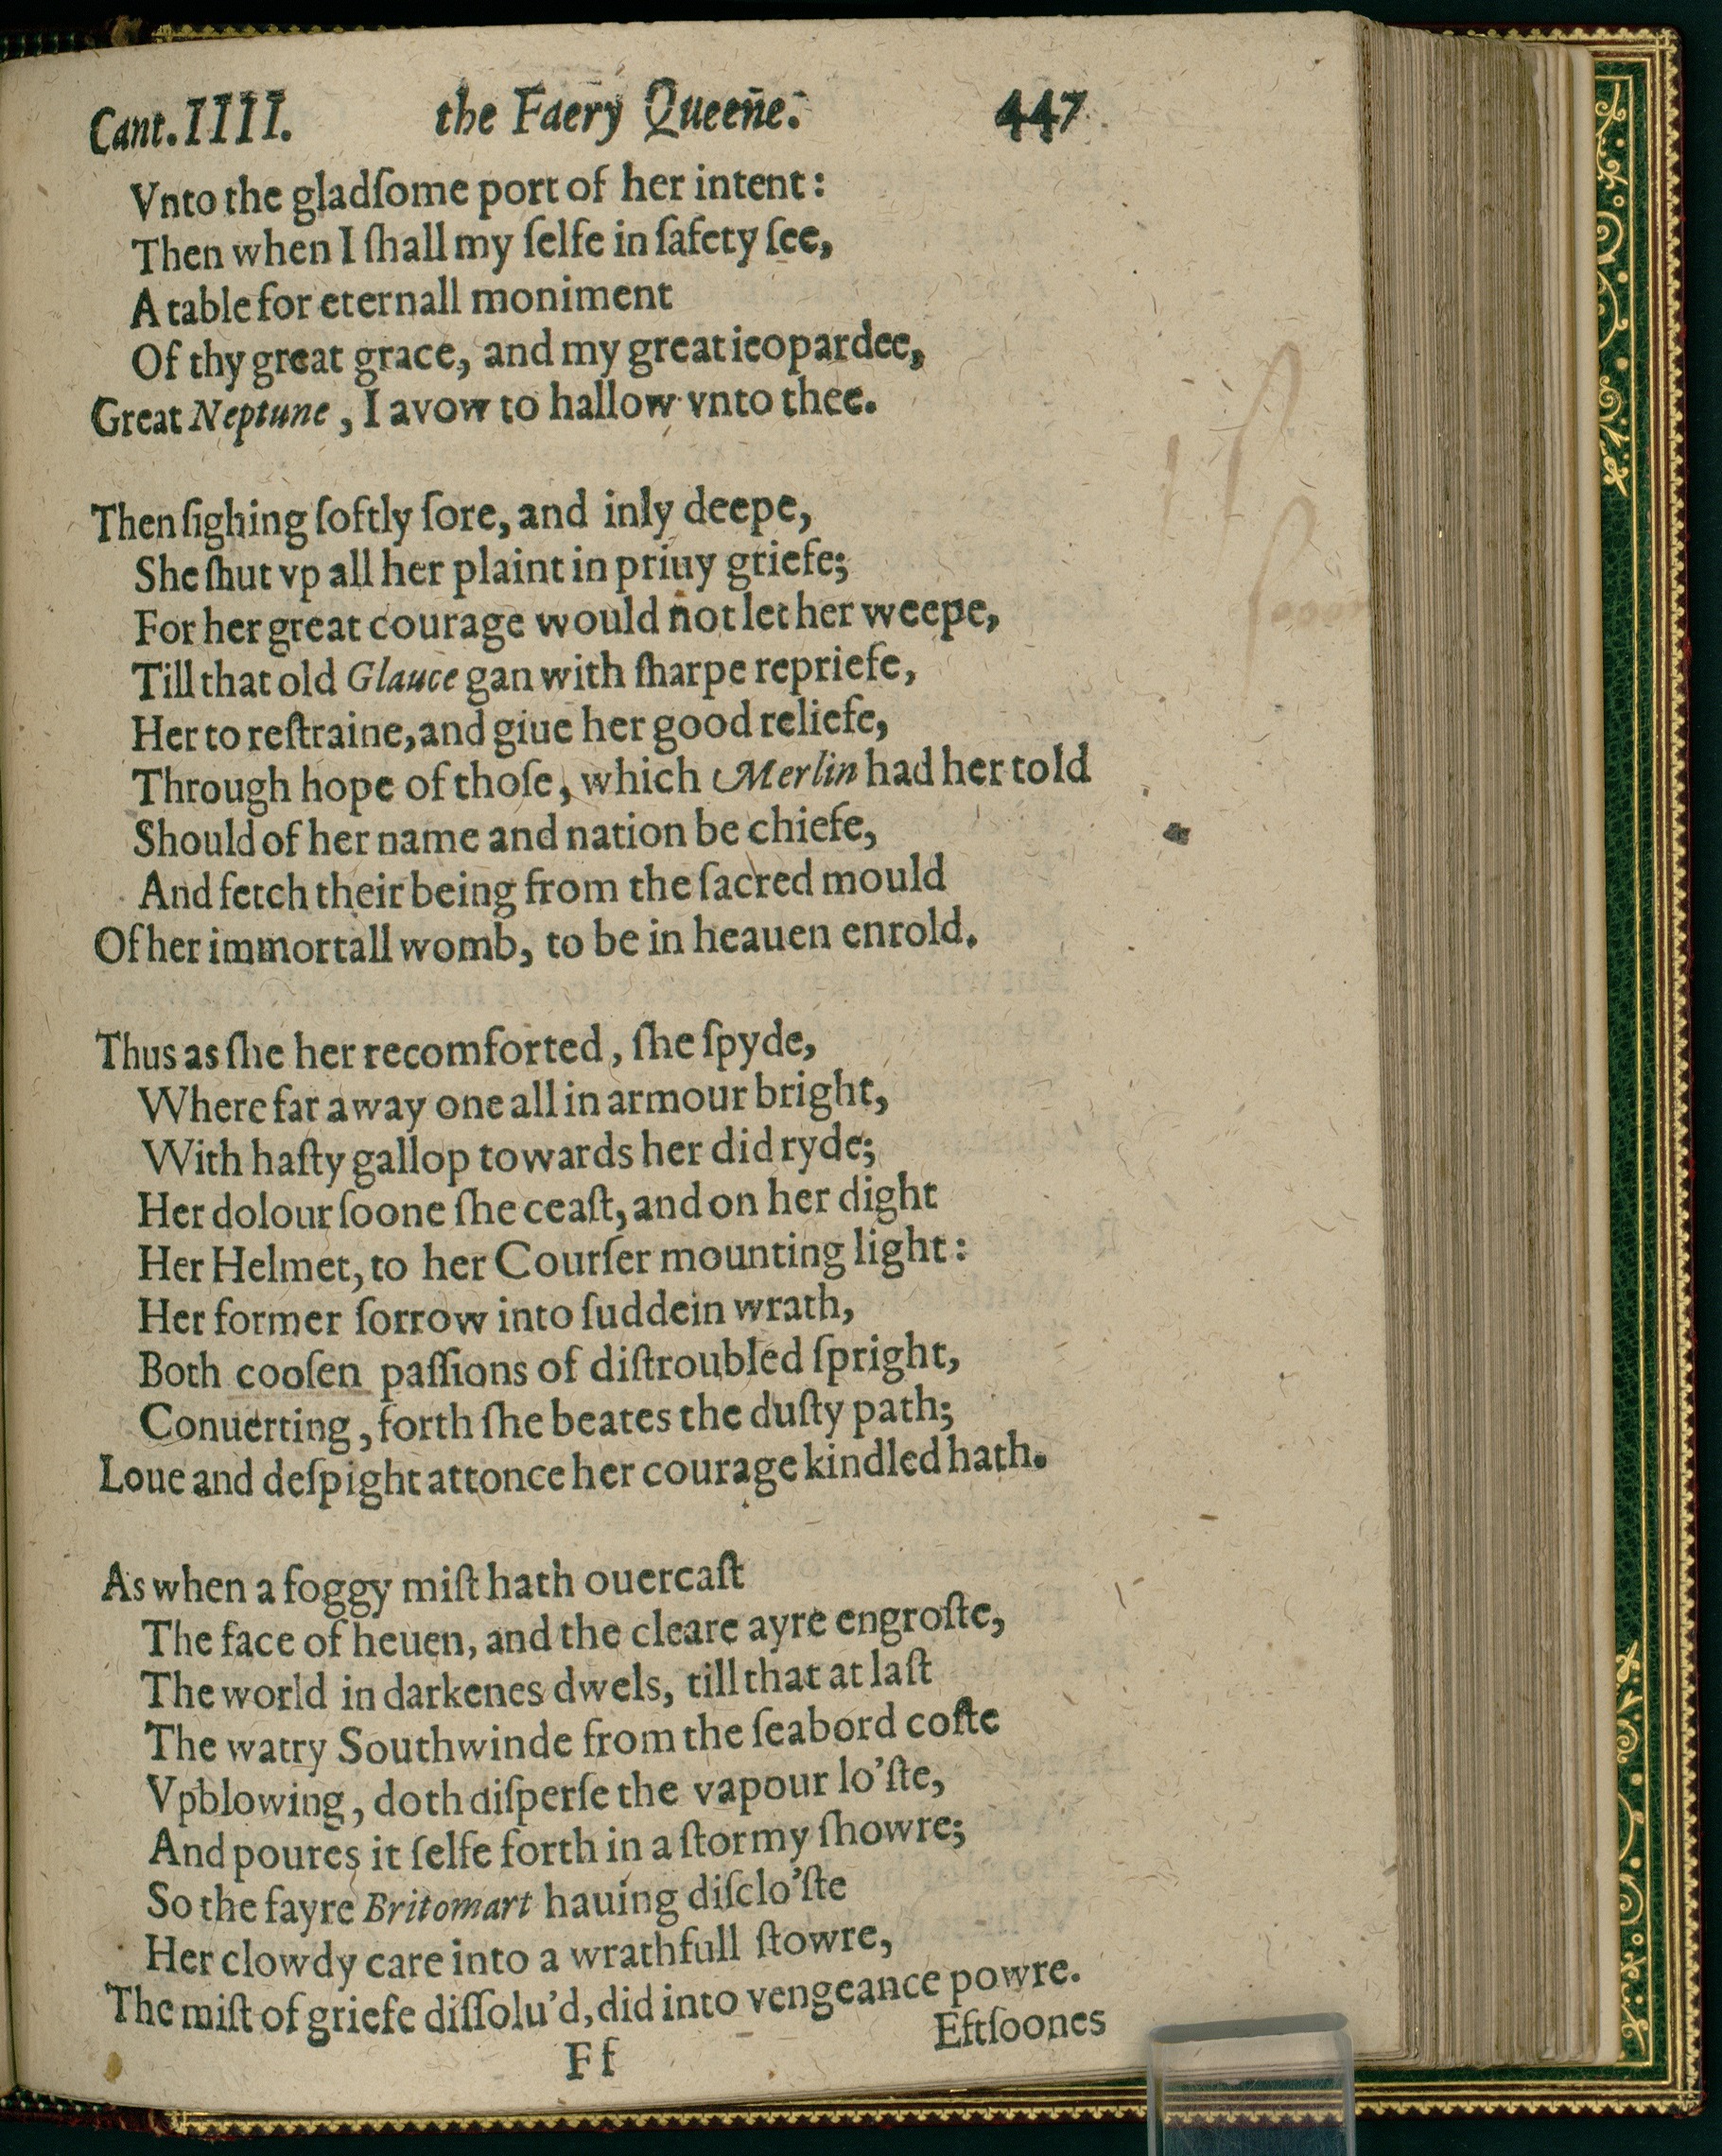 Cant. IIII. the Faery Queene. 447
Vnto the gladſome port of her intent:
Then when I ſhall my ſelfe in ſafety ſee,
A table for eternall moniment
Of thy great grace, and my great ieopardee,
Great Neptune, I avow to hallow vnto thee.
Then ſighing ſoftly ſore, and inly deepe,
She ſhut vp all her plaint in priuy griefe;
For her great courage would not let her weepe,
Till that old Glauce gan with ſharpe repriefe,
Her to reſtraine, and giue her good reliefe,
Through hope of thoſe, which Merlin had her told
Should of her name and nation be chiefe,
And fetch their being from the ſacred mould
Of her immortall womb, to be in heauen enrold.
Thus as ſhe her recomforted, ſhe ſpyde,
Where far away one all in armour bright,
With haſty gallop towards her did ryde;
Her dolour ſoone ſhe ceaſt, and on her dight
Her Helmet, to her Courſer mounting light:
Her former ſorrow into ſuddein wrath,
Both cooſen paſſions of diſtroubled ſpright,
Conuerting, forth ſhe beates the duſty path;
Loue and deſpight attonce her courage kindled hath.
As when a foggy miſt hath ouercaſt
The face of heuen, and the cleare ayre engroſte,
The world in darkenes dwels, till that at laſt
The watry Southwinde from the ſeabord coſte
Vpblowing, doth diſperſe the vapour lo'ſte,
And poures it ſelfe forth in a ſtormy ſhowre;
So the fayre Britomart hauing diſclo'ſte
Her clowdy care into a wrathfull ſtowre,
The miſt of griefe diſſolu'd, did into vengeance powre.
Eftſoones
Ff